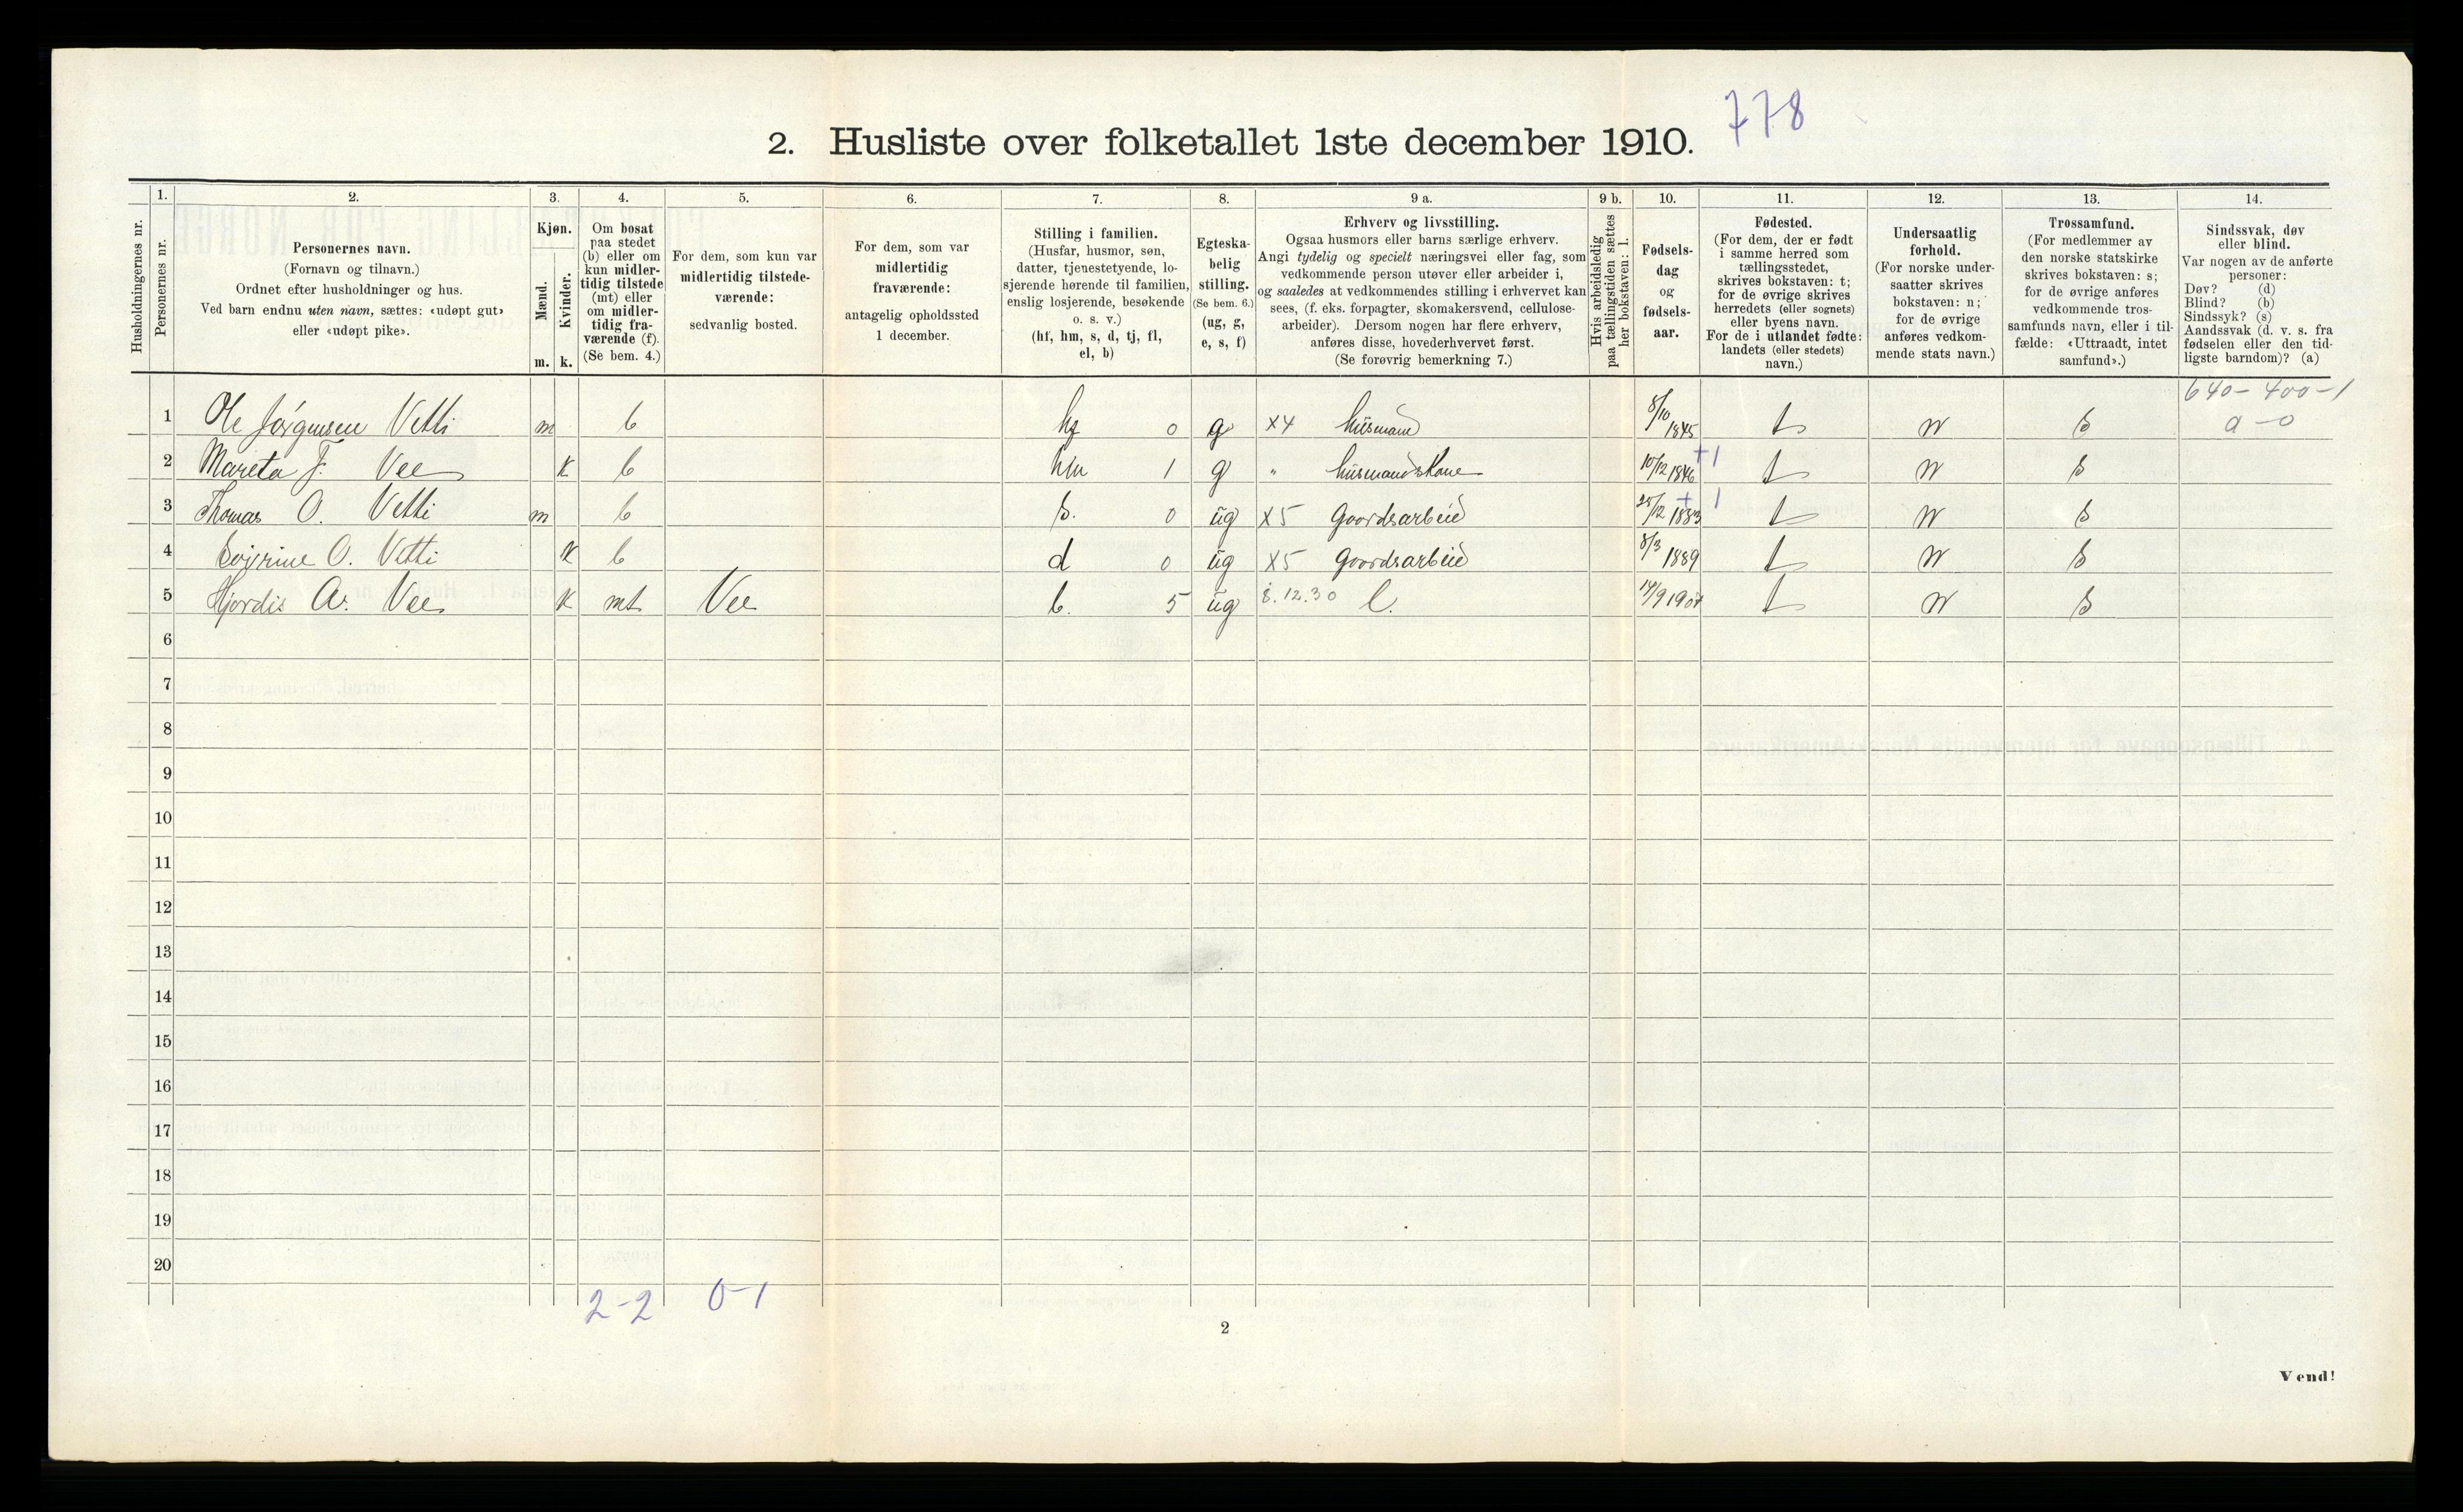 2. Husliste over folketallet 1ste december 1910.
778
Husholdningernes nr.
1.
Personernes nr.
2.
Personernes navn.
(Fornavn og tilnavn.)
Ordnet efter husholdninger og hus.
Ved barn endnu uten navn, sættes: «udøpt gut»
eller «udøpt pike».
3.
Kjøn.
Mænd.
Kvinder.
m. k.
4.
Om bosat
paa stedet
(b) eller om
kun midler-
tidig tilstede
(mt) eller
om midler-
tidig fra-
værende (f).
(Se bem. 4.)
5.
For dem, som kun var
midlertidig tilstede-
værende:
sedvanlig bosted.
6.
For dem, som var
midlertidig
fraværende:
antagelig opholdssted
1 december.
7.
Stilling i familien.
(Husfar, husmor, søn,
datter, tjenestetyende, lo-
sjerende hørende til familien,
enslig losjerende, besøkende
o. s. v.)
(hf, hm, s, d, tj, fl,
el, b)
8.
Egteska-
belig
stilling.
(Se bem. 6.)
(ug, g,
e, s, f)
9 a.
Erhverv og livsstilling.
Ogsaa husmors eller barns særlige erhverv.
Angi tydelig og specielt næringsvei eller fag, som
vedkommende person utøver eller arbeider i,
og saaledes at vedkommendes stilling i erhvervet kan
sees, (f. eks. forpagter, skomakersvend, cellulose-
arbeider). Dersom nogen har flere erhverv,
anføres disse, hovederhvervet først.
(Se forøvrig bemerkning 7.)
9 b.
Hvis arbeidsledig
paa tællingstiden sættes
her bokstaven: l.
10.
Fødsels-
dag
og
fødsels-
aar.
11.
Fødested.
(For dem, der er født
i samme herred som
tællingsstedet,
skrives bokstaven: t;
for de øvrige skrives
herredets (eller sognets)
eller byens navn.
For de i utlandet fødte:
landets (eller stedets)
navn.)
12.
Undersaatlig
forhold.
(For norske under-
saatter skrives
bokstaven: n;
for de øvrige
anføres vedkom-
mende stats navn.)
13.
Trossamfund.
(For medlemmer av
den norske statskirke
skrives bokstaven: s;
for de øvrige anføres
vedkommende tros-
samfunds navn, eller i til-
fælde: «Uttraadt, intet
samfund».)
14.
Sindssvak, døv
eller blind.
Var nogen av de anførte
personer:
Døv? (d)
Blind? (b)
Sindssyk? (s)
Aandssvak (d. v. s. fra
fødselen eller den tid-
ligste barndom)? (a)
640-400-1
1 Ole Jørgensen Vetti m b hf 0 g X4 husmand 8/10 1845 t n s a-0
2 Mareta F. Vee k b hm 1 g " husmandskone 10/12 1846 +1 t n s
3 Thomas O. Vetti m b s. 0 ug X5 Goordsarbeid 25/12 1883 +1 t n s
4 O. Vetti k b d 0 ug X5 Goordsarbeid 8/3 1889 t n s
5 Hjordis A. Vee k mt Vee b. 5 ug 8.12.30 14/9 1907 t n s
6
7
8
9
10
11
12
13
14
15
16
17
18
19
20
2-2 0-1
2
Vend!